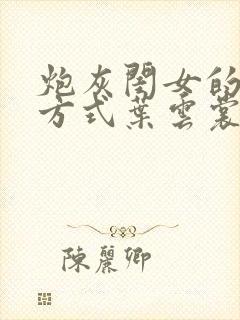 炮灰閨女的
方式葉雲裳
陳麗卿